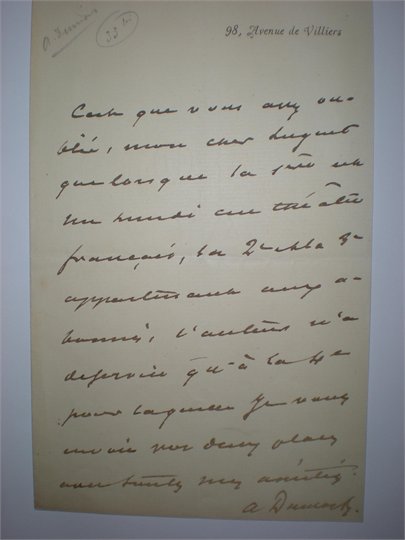 A Dumas
33 bis
98, Avenue de Villiers
C'est que vous avez ou-
blié, mon cher Luguet
que lorsque la 1ère est
un lundi au théâtre
français, la 2e et la 3e
appartenant aux a-
bonnés, l'auteur n'a
de service qu'à la 4e
pour laquelle je vous
envoie vos deux places
avec toutes mes amitiés.
A Dumas f.